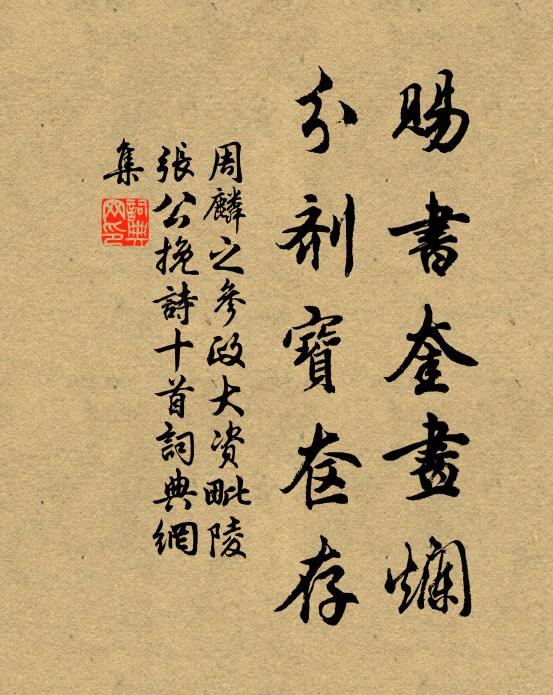 賜書奎畫爛
分劑寶奩存
周麟之參政大资毗陵
張公挽詩十首詞典網
集
詞典
网印